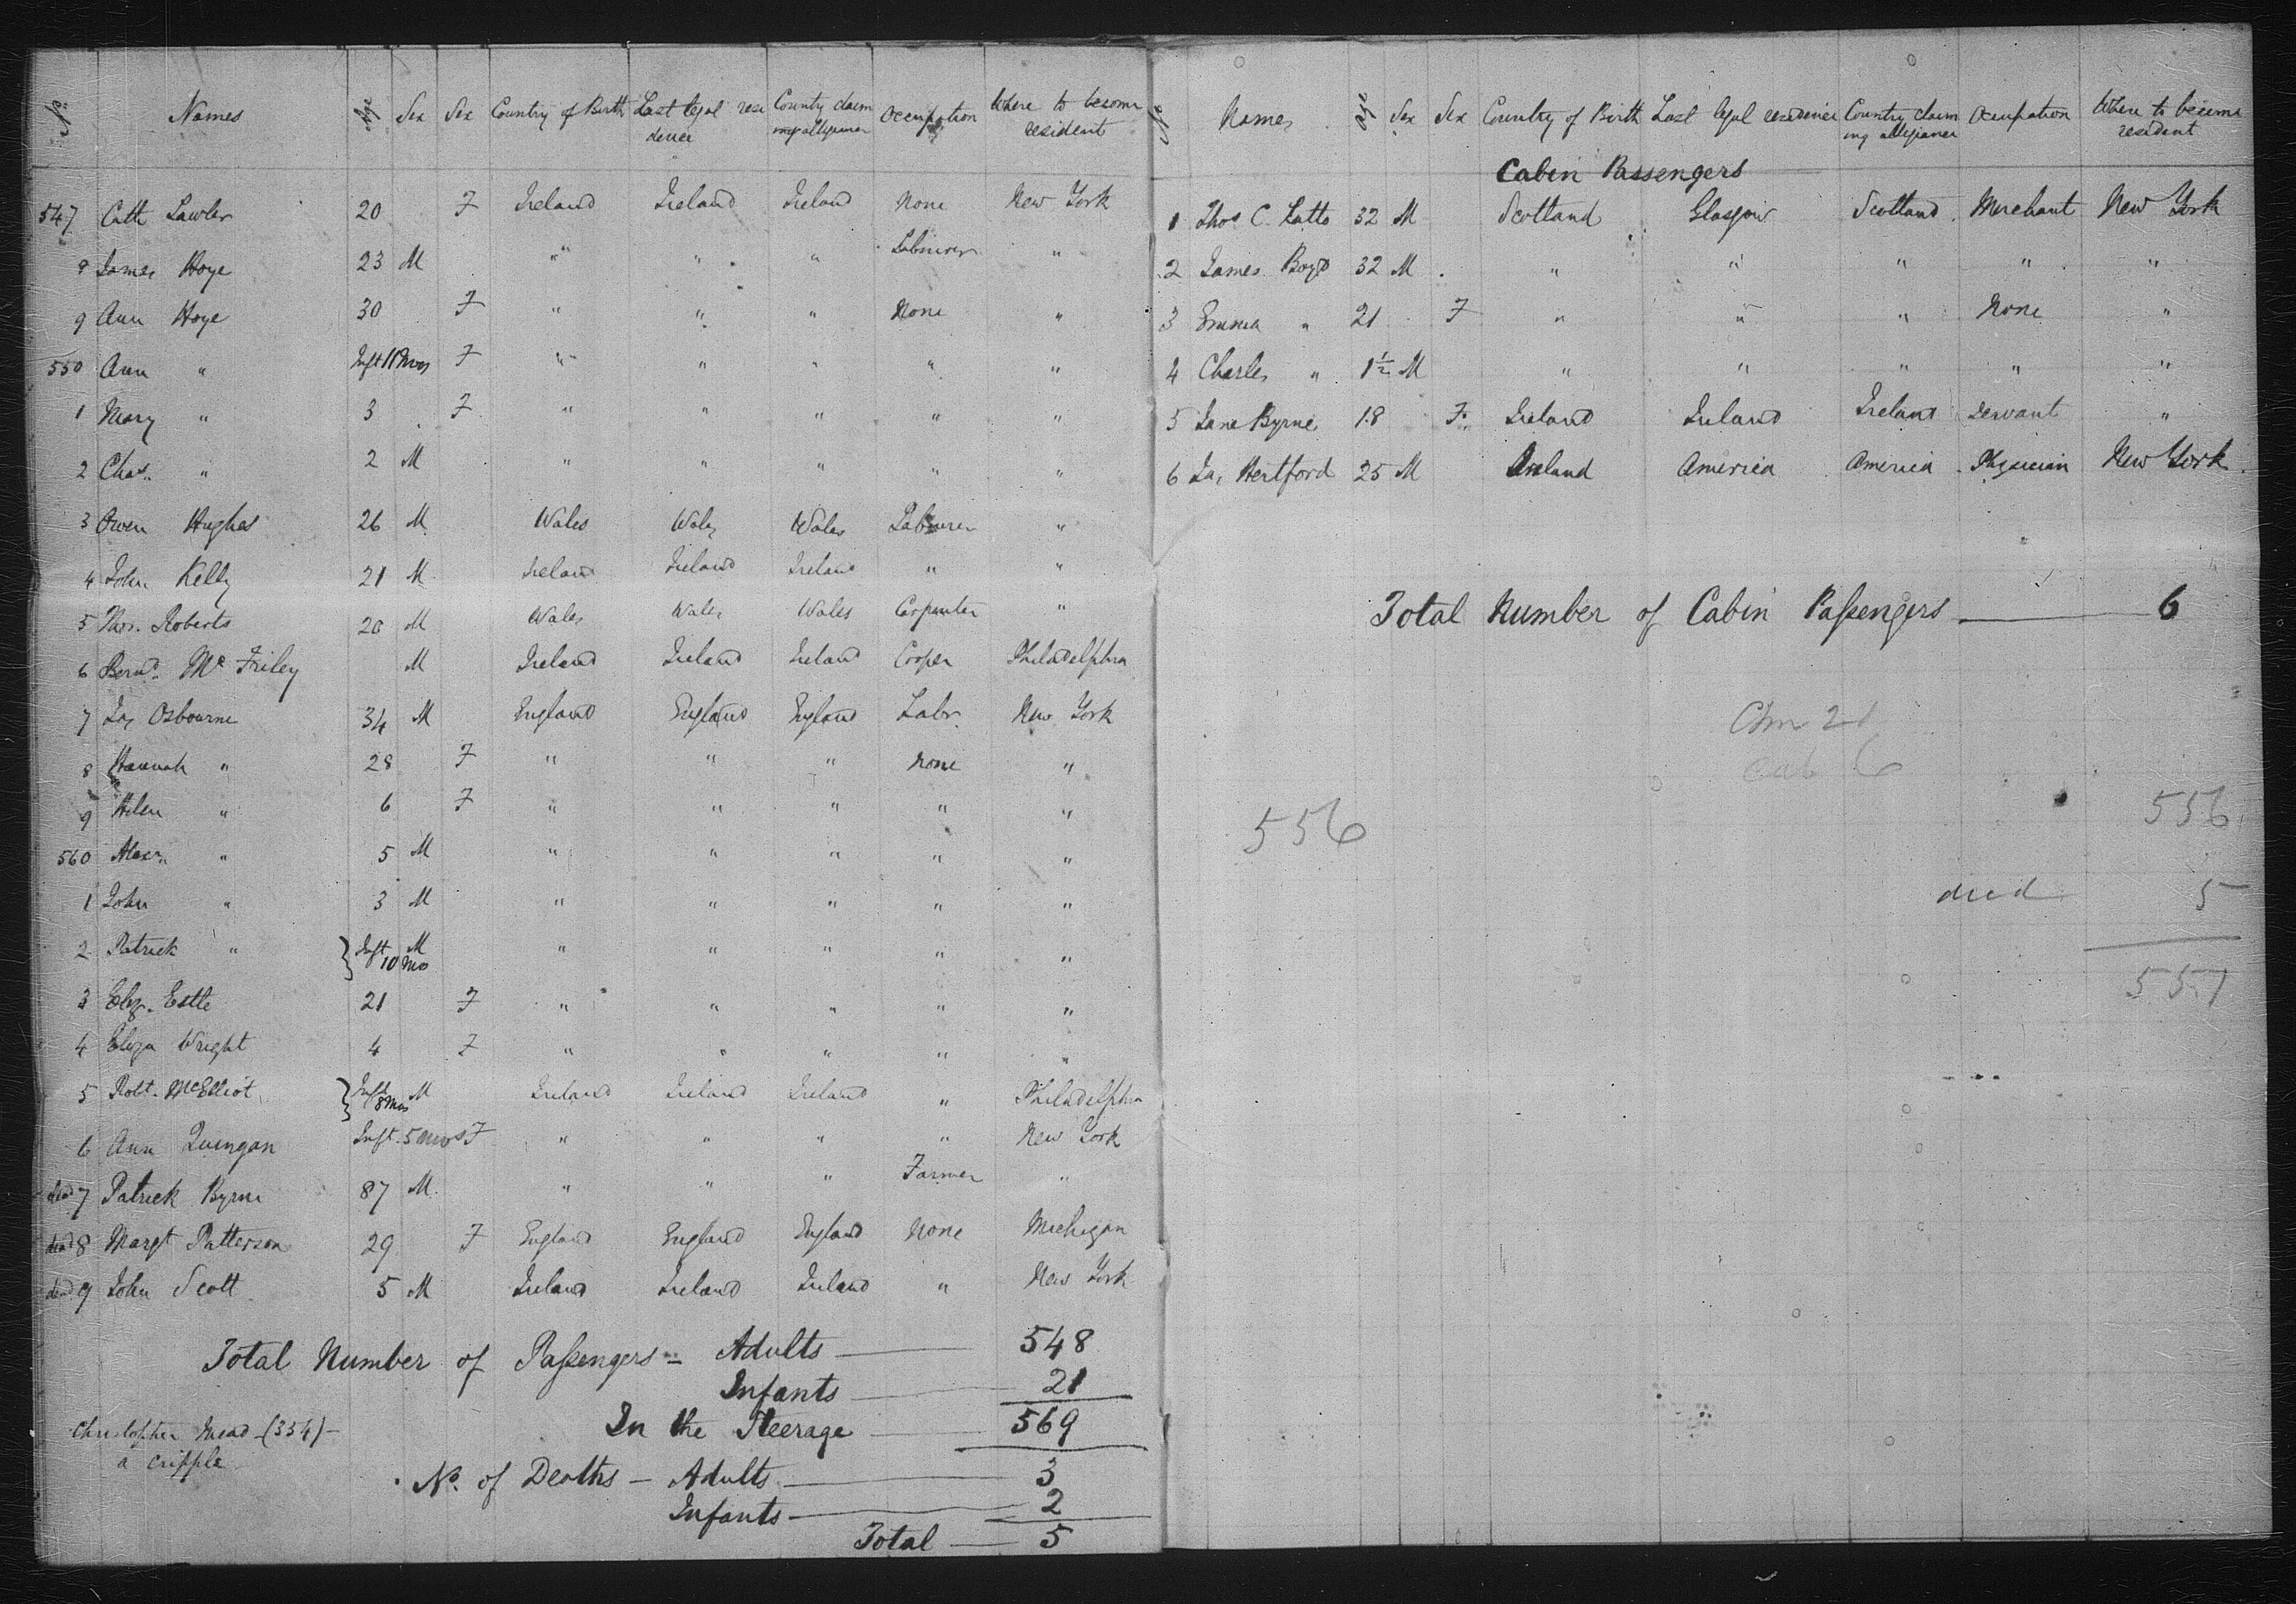 No. Names Age Sex Sex Country of Birth Last legal resi Country claim Occupation Where to become
dence ing allegiance resident
547 Cath Lawler 20 F Ireland Ireland Ireland None New York
8 James Hoye 23 M " " " Labourer "
9 Ann Hoye 30 F " " " None "
550 Ann " Inft 11 Mos F " " " " "
1 Mary " 3 F " " " " "
2 Chas. " 2 M " " " " "
3 Owen Hughes 26 M Wales Wales Wales Labourer "
4 John Kelly 21 M Ireland Ireland Ireland " "
5 Thos. Roberts 20 M Wales Wales Wales Carpenter "
6 Bernd. Mc Friley M Ireland Ireland Ireland Cooper Philadelphia
7 Jas Osbourne 34 M England England England Labr. New York
8 Hannah " 28 F " " " None "
9 Helen " 6 F " " " " "
560 Alexr. " 5 M " " " " "
1 John " 3 M " " " " "
2 Patrick " Inft 10 Mos M " " " " "
3 Eliz. Estle 21 F " " " " "
4 Eliza Wright 4 F " " " " "
5 Robt. McElliot Inft 8 Mos M Ireland Ireland Ireland " Philadelphia
6 Ann Quingan Inft. 5 Mos F " " " " New York
dead 7 Patrick Byrne 87 M " " " Farmer "
dead 8 Margt Patterson 29 F England England England None Michigan
dead 9 John Scott 5 M Ireland Ireland Ireland " New York
Total Number of Passengers - Adults 548
Infants 21
In the Steerage 569
Christopher Mead (354)
a cripple
No. of Deaths - Adults 3
Infants 2
Total 5
No. Names Age Sex Sex Country of Birth Last legal residence Country claim Occupation Where to become
ing allegiance resident
Cabin Passengers
1 Thos C. Latto 32 M Scotland Glasgow Scotland Merchant New York
2 James Boyd 32 M " " " " "
3 Emma " 21 F " " " None "
4 Charles " 1½ M " " " " "
5 Jane Byrne 18 F Ireland Ireland Ireland Servant "
6 Jas Hertford 25 M Ireland America America Physician New York
Total Number of Cabin Passengers 6
Chn 21
Cab 6
556
556
died 5
551